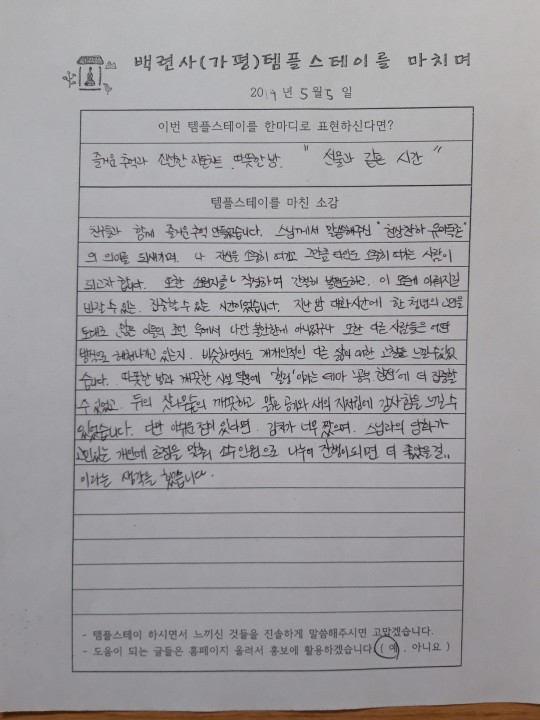 백련사(가평)템플스테이를 마치며
2019년 5월 5일
이번 템플스테이를 한마디로 표현하신다면?
즐거운 추억과 신선한 따뜻한 방. "선물과 같은 시간"
템플스테이를 마친 소감
친구들과 함께 즐거운 추억 만들었습니다. 스님께서 말씀해주신 "천상천하 유아독존"
의 의미를 되새기며. 나 자신을 소중히 여기고 그만큼 타인도 소중히 여기는 사람이
되고자 합니다. 또한 소원지를 작성하며 간절히 발원도하고. 이 모든게 이뤄지길
바랄 수 있는. 집중할 수 있는 시간이었습니다. 지난 밤 대화시간에 한 청년의 고민을
토대로 많은 이들의 고민 속에서 나만 불안한게 아니었구나 또한 다른 사람들은 어떤
방식으로 헤쳐나가고 있는지. 비슷하면서도 개개인적인 다른 삶에 대한 고찰을 느낄 수 있었
습니다. 따뜻한 방과 깨끗한 시설 덕분에 '힐링'이라는 테마 에 더 집중할
수 있었고. 뒤의 잣나무숲의 깨끗하고 맑은 공기와 새의 지저귐에 감사함을 느낄 수
있었습니다. 다만 아쉬운 점이 있다면. 김치가 너무 짰으며. 스님과의 담화가
고민있는 개인에 초점을 맞춰 소수인원으로 나누어 진행이 되면 더 좋았을걸..
이라는 생각을 했습니다.
- 템플스테이 하시면서 느끼신 것들을 진솔하게 말씀해주시면 고맙겠습니다.
- 도움이 되는 글들은 홈페이지 올려서 홍보에 활용하겠습니다.(예, 아니요)